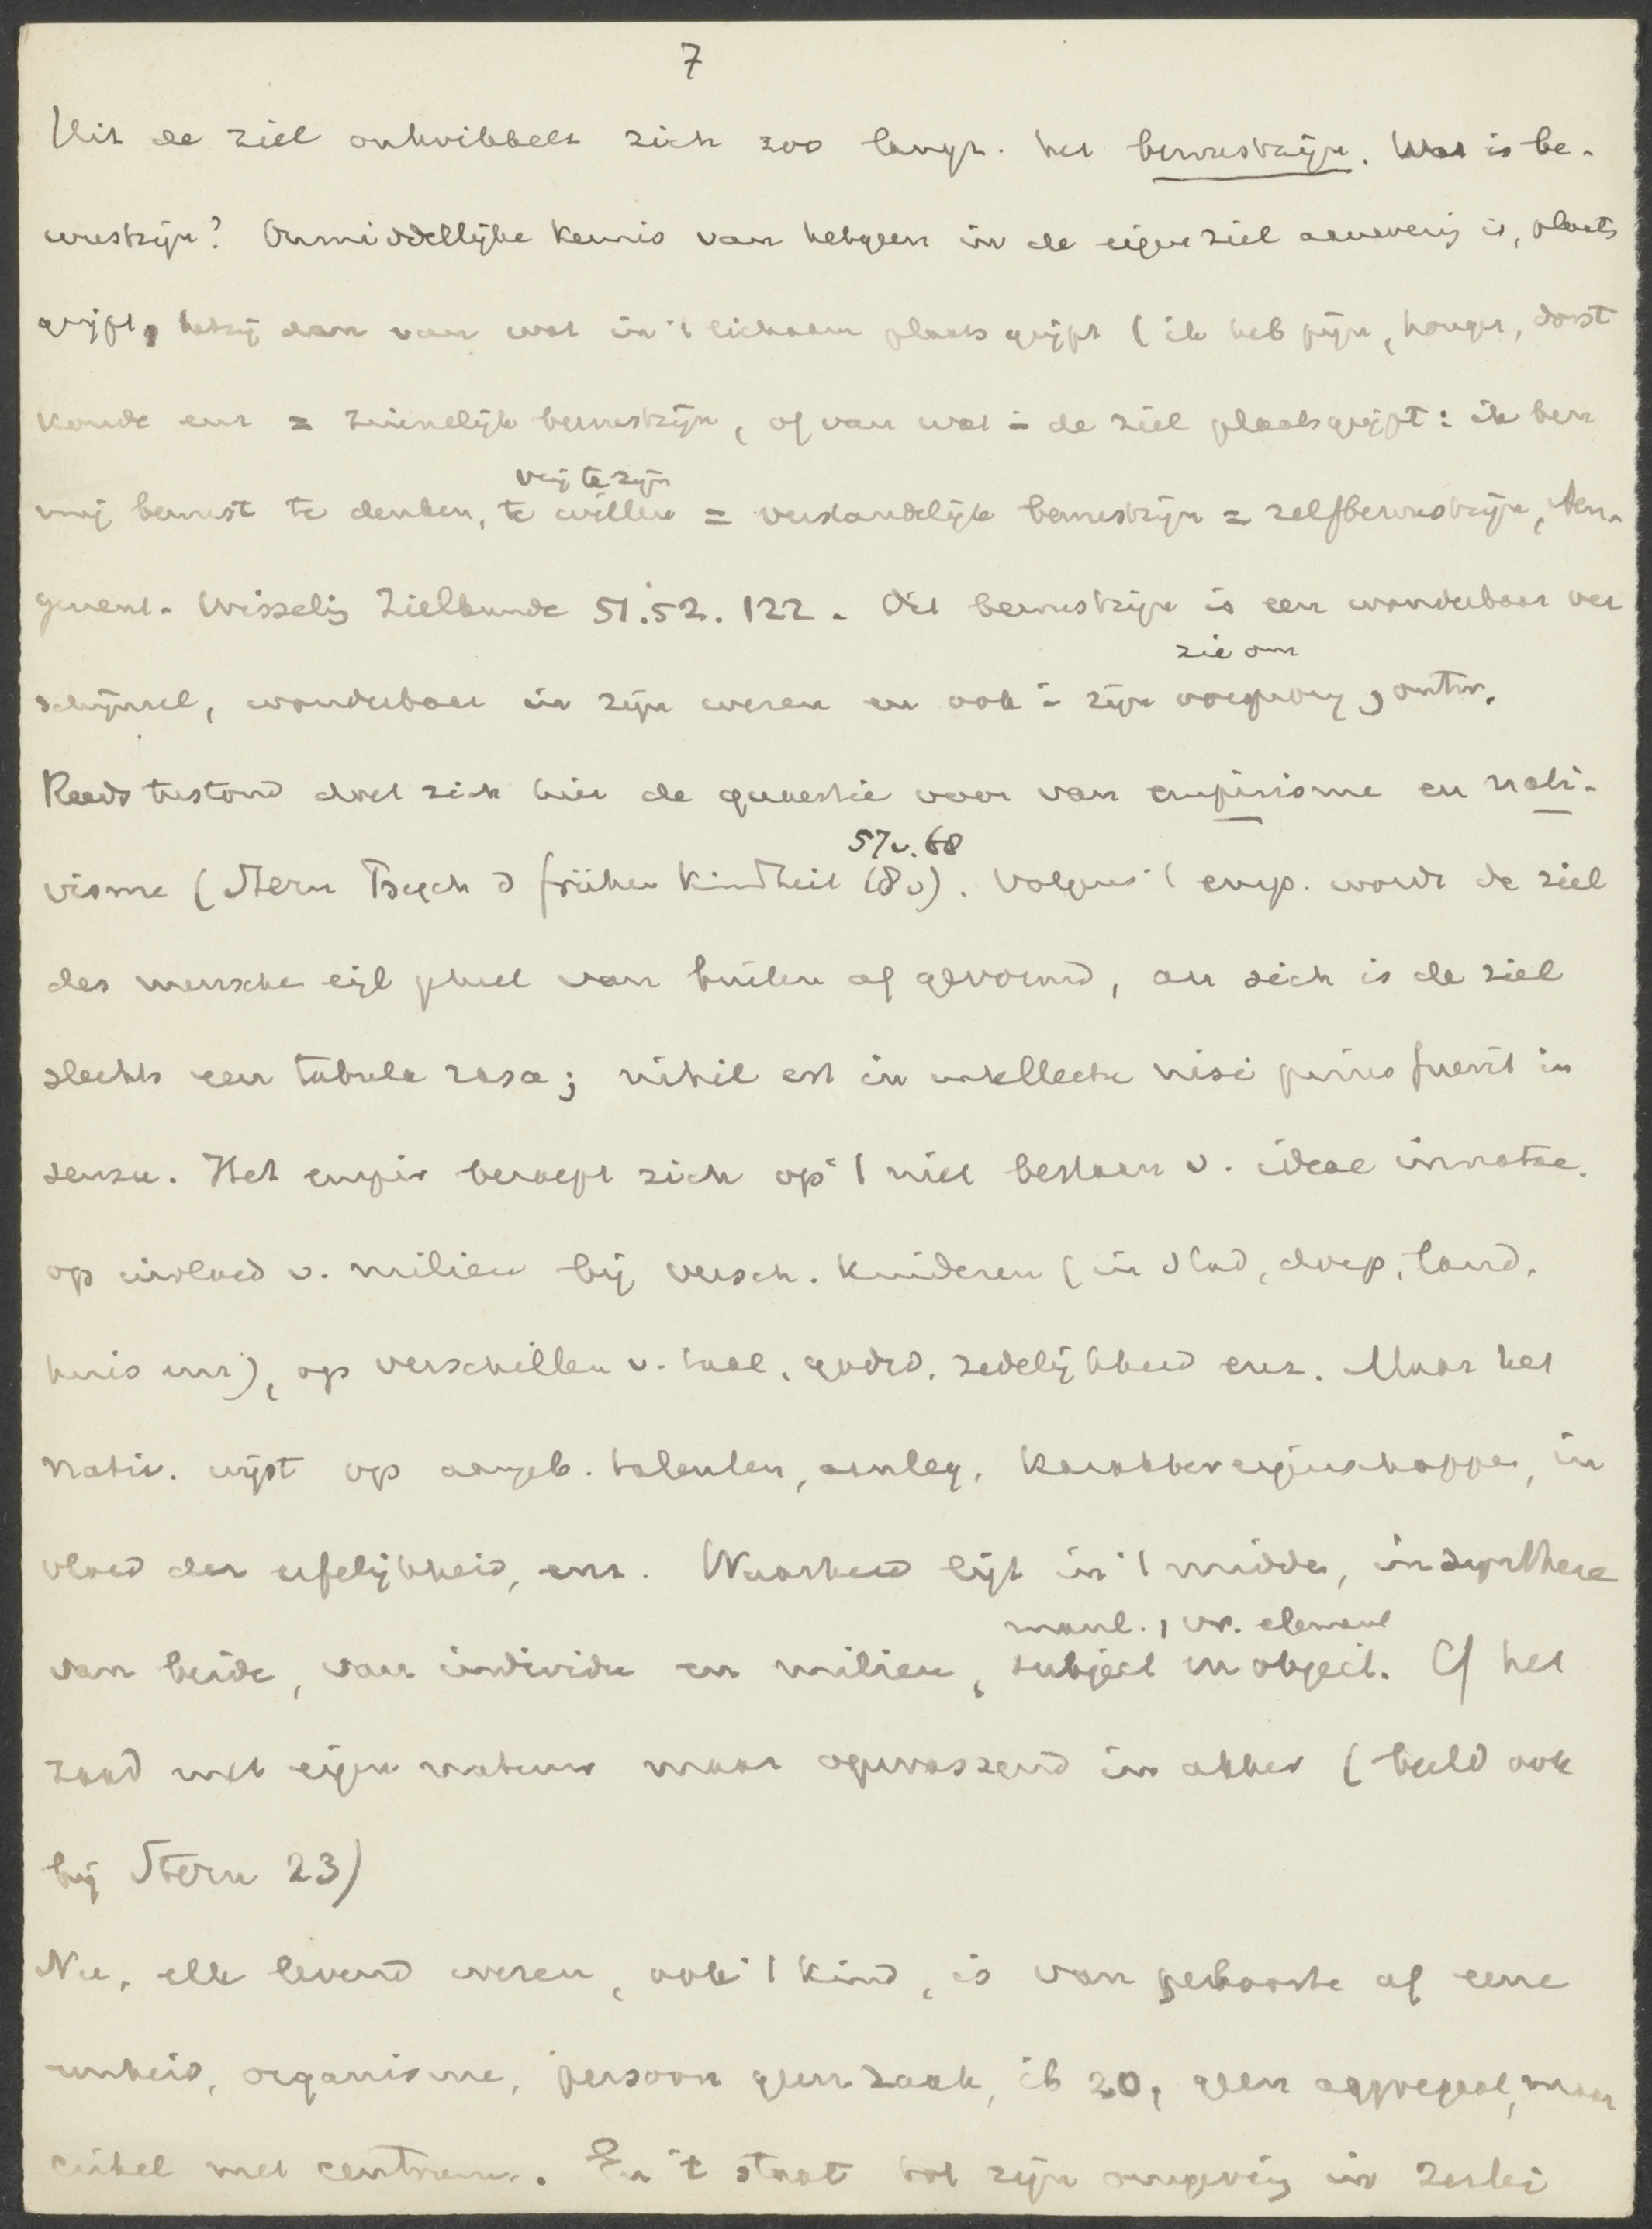 7
Uit de ziel ontwikkelt zich zoo langz. het bewustzijn. Wat is be-
wustzijn? Onmiddellijke kennis van hetgeen in de eigen ziel aanwezig is, plaats
grijpt, hetzij dan van wat in 't lichaam plaats grijpt (ik heb pijn, honger, dorst
koude enz = zinnelijk bewustzijn, of van wat in de ziel plaatsgrijpt: ik ben
vrij te zijn
mij bewust te denken, te willen = verstandelijk bewustzijn = zelfbewustzijn,
Wisselinq Zielkunde 51.52.122. Dit bewustzijn is een wonderbaar ver
zie om
schijnsel, wonderbaar in zijn wezen en ook in zijn oorsprong, ontw.
Reeds terstond doet zich hier de quaestie voor van empirisme en nati-
57v. 68
visme (Stern Psych d frühen Kindheit 18v). Volgens 't emp. wordt de ziel
des menschen eigl geheel van buiten af gevormd, an sich is de ziel
slechts een tabula rasa; nihil est in intellectu nisi prius fuerit in
sensu. Het empir beroept zich op 't niet bestaan v. ideae innatae.
op invloed v. milieu bij versch. kinderen (in stad, dorp, land,
huis enz), op verschillen v. taal, godsd. zedelijkheid enz. Maar het
nativ. wijst op aangeb. talenten, aanleg, karaktereigenschappen, in
vloed der erfelijkheid, enz. Waarheid ligt in 't midden, in synthese
manl., vr. element
van beide, van individu en milieu, subject en object. Cf het
zaad met eigen natuur maar opwassend in akker (beeld ook
bij Stern 23)
Nu, elk levend wezen, ook 't kind, is van geboorte af eene
eenheid, organisme, persoon geen zaak, ib 20, geen aggregaat, maar
cirkel met centrum. En 't staat tot zijn omgeving in zerlei